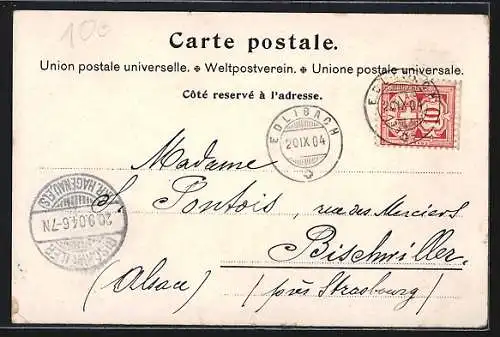 100
Carte postale.
Union postale universelle. ✦ Weltpostverein. ✦ Unione postale universale.
Côté reservé à l'adresse.
EDLIBACH
20 IX 04
EDLIBACH
20 IX 04
10
Madame
S. Pontois, rue des Merciers
Bischwiller
(Alsace) (près Strasbourg)
BISCHWEILER
20.9.04.6-7N
(KR HAGENAU, ELS)